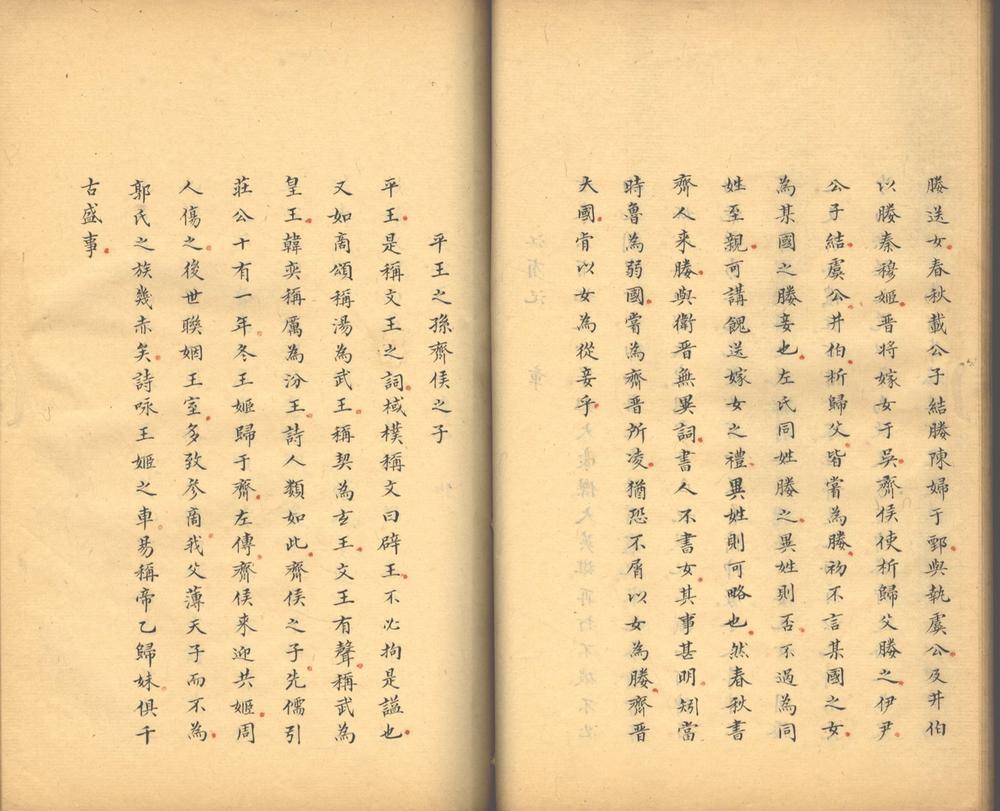 媵送女春秋載公子結媵陳婦于鄄與執虞公及井伯
以媵秦穆姬晉將嫁女于吳齊侯使析歸父媵之伊尹
公子結虞公井伯析歸父皆嘗為媵初不言某國之女
為某國之媵妾也左氏同姓媵之異姓則否不過為同
姓至親可講餽送嫁女之禮異姓則可略也然春秋書
齊人來媵與衛晉無異詞書人不書女其事甚明矧當
時魯為弱國嘗為齊晉所凌猶恐不屑以女為媵齊晉
大國肯以女為從妾乎
平王之孫齊侯之子
平王是稱文王之詞棫樸稱文曰辟王不必拘是謚也
又如商頌稱湯為武王稱契為玄王文王有聲稱武為
皇王韓奕稱厲為汾王詩人類如此齊侯之子先儒引
莊公十有一年冬王姬歸于齊左傳齊侯來迎共姬周
人傷之後世聯姻王室多致參商我父薄天子而不為
郭氏之族幾赤矣詩咏王姬之車易稱帝乙歸妹俱千
古盛事